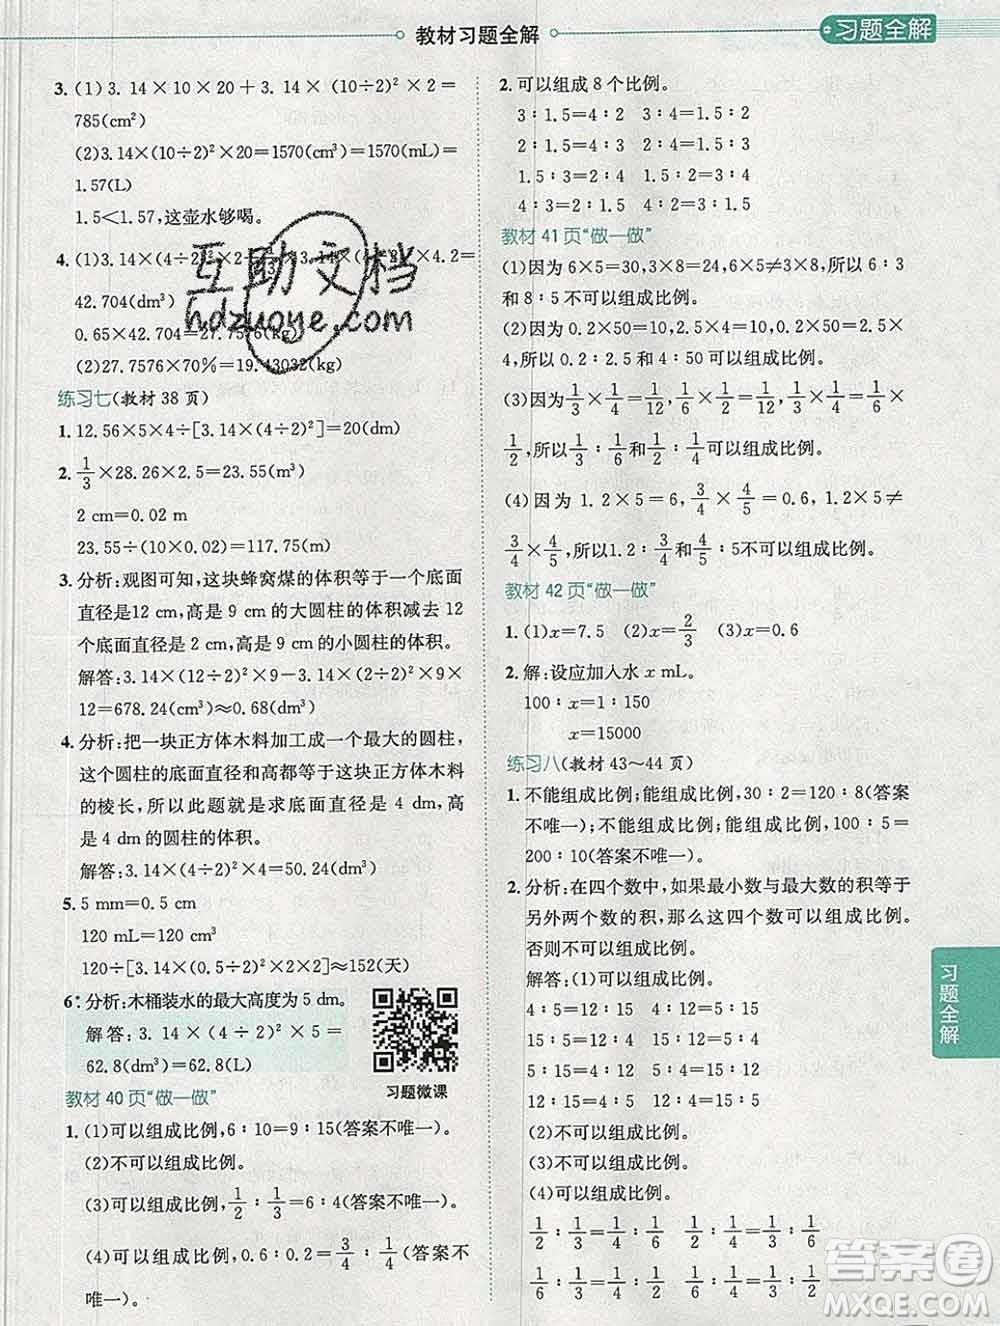 教材习题全解
习题全解
3. (1)3.14×10×20+3.14×(10÷2)²×2=
785(cm²)
(2)3.14×(10÷2)²×20=1570(cm³)=1570(mL)=
1.57(L)
1.5<1.57,这壶水够喝。
4. (1)3.14×(4÷2)²×
×4.2=
42.704(dm³)
0.65×42.704=27.7576(kg)
(2)27.7576×70%=19.43032(kg)
练习七(教材 38 页)
1. 12.56×5×4÷[3.14×(4÷2)²]=20(dm)
2. 1/3×28.26×2.5=23.55(m³)
2 cm=0.02 m
23.55÷(10×0.02)=117.75(m)
3. 分析:观图可知,这块蜂窝煤的体积等于一个底面
直径是12 cm,高是 9 cm的大圆柱的体积减去 12
个底面直径是2 cm,高是 9 cm的小圆柱的体积。
解答:3.14×(12÷2)²×9-3.14×(2÷2)²×9×
12=678.24(cm³)≈0.68(dm³)
4. 分析:把一块正方体木料加工成一个最大的圆柱,
这个圆柱的底面直径和高都等于这块正方体木料
的棱长,所以此题就是求底面直径是 4 dm,高是
4 dm的圆柱的体积。
解答:3.14×(4÷2)²×4=50.24(dm³)
5. 5 mm=0.5 cm
120 mL=120 cm³
120÷[3.14×(0.5÷2)²×2×2]≈152(天)
6*. 分析:木桶装水的最大高度为 5 dm。
解答:3.14×(4÷2)²×5=
62.8(dm³)=62.8(L)
习题微课
教材 40 页“做一做”
1. (1)可以组成比例,6∶10=9∶15(答案不唯一)。
(2)不可以组成比例。
(3)可以组成比例,1/2∶1/3=6∶4(答案不唯一)。
(4)可以组成比例,0.6∶0.2=3/4∶1/4(答案不
唯一)。
2. 可以组成 8 个比例。
3∶1.5=4∶2 3∶4=1.5∶2
2∶1.5=4∶3 2∶4=1.5∶3
1.5∶3=2∶4 1.5∶2=3∶4
4∶3=2∶1.5 4∶2=3∶1.5
教材 41 页“做一做”
(1)因为 6×5=30,3×8=24,6×5≠3×8,所以 6∶3
和 8∶5不可以组成比例。
(2)因为 0.2×50=10,2.5×4=10,0.2×50=2.5×
4,所以 0.2∶2.5和 4∶50可以组成比例。
(3)因为1/3×1/4=1/12,1/6×1/2=1/12,1/3×1/4=1/6×
1/2,所以1/3∶1/6和1/2∶1/4可以组成比例。
(4)因为 1.2×5=6,3/4×4/5=0.6,1.2×5≠
3/4×4/5,所以1.2∶3/4和4/5∶5不可以组成比例。
教材 42 页“做一做”
1. (1)x=7.5 (2)x=2/3 (3)x=0.6
2. 解:设应加入水 x mL。
100∶x=1∶150
x=15000
练习八(教材 43~44 页)
1. 不能组成比例;能组成比例,30∶2=120∶8(答案
不唯一);不能组成比例;能组成比例,100∶5=
200∶10(答案不唯一)。
2. 分析:在四个数中,如果最小数与最大数的积等于
另外两个数的积,那么这四个数可以组成比例。
否则不可以组成比例。
解答:(1)可以组成比例。
4∶5=12∶15 4∶12=5∶15
15∶5=12∶4 15∶12=5∶4
5∶15=4∶12 5∶4=15∶12
12∶15=4∶5 12∶4=15∶5
(2)可以组成比例。
(3)不可以组成比例。
(4)可以组成比例。
1/2∶1/3=1/6∶1/4 1/2∶1/6=1/3∶1/4
1/6∶1/4=1/2∶1/3 1/6∶1/2=1/4∶1/3
习题全解
互助文档
hdzuoye.com
答案圈
MXQE.COM